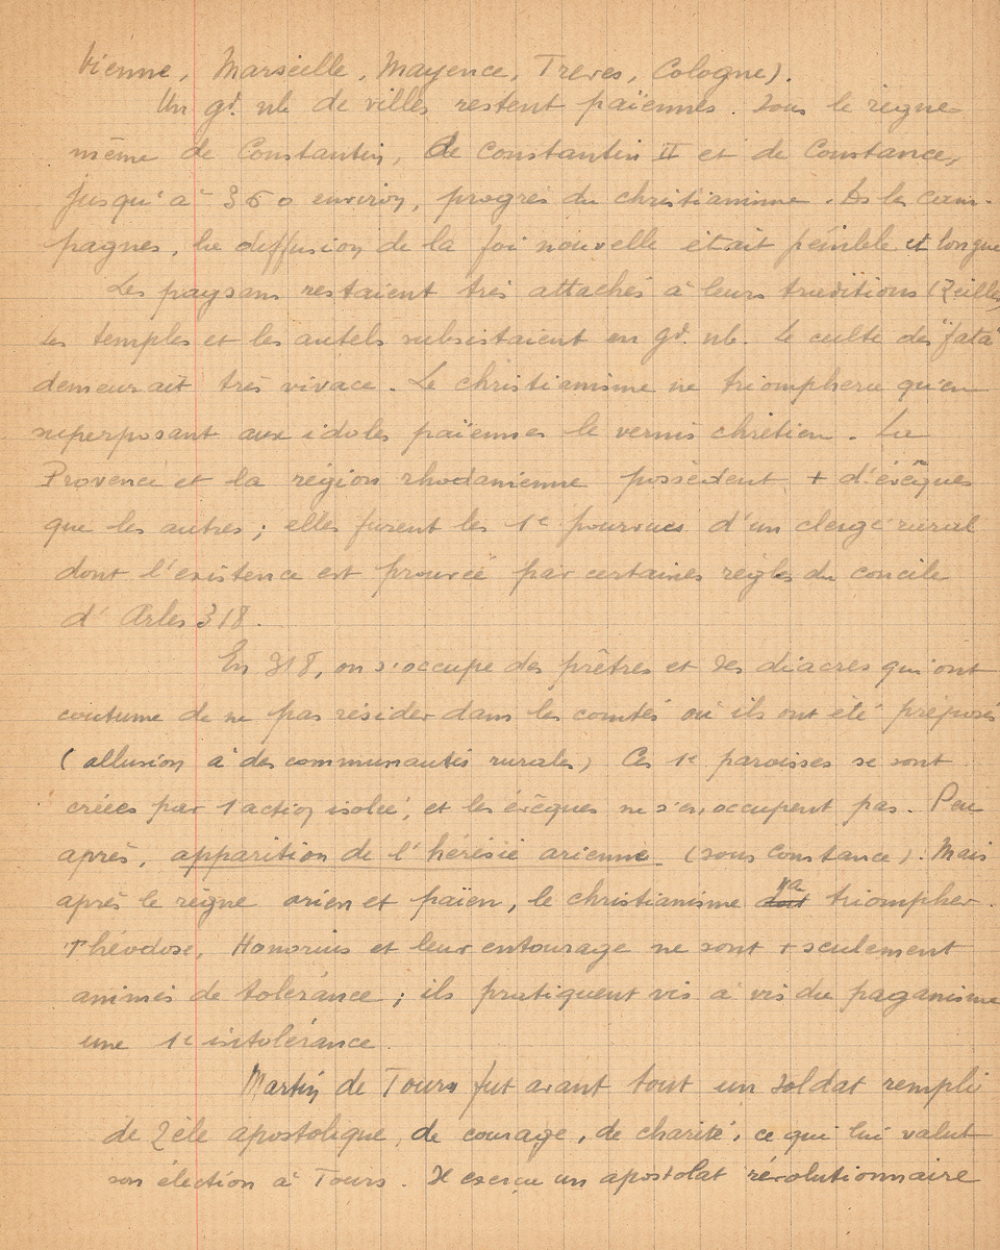 Vienne, Marseille, Mayence, Trèves, Cologne).
Un gd. nb de villes restent païennes. Sous le règne
même de Constantin, de Constantin II et de Constance,
jusqu'à 360 environ, progrès du christianisme. Ds les cam-
pagnes, la diffusion de la foi nouvelle était pénible et longue
Les paysans restaient très attachés à leurs traditions (Zeiller)
Les temples et les autels subsistaient en gd. nb. Le culte des "fata"
demeurait très vivace. Le christianisme ne triomphera qu'en
superposant aux idoles païennes le vernis chrétien. La
Provence et la région rhodanienne possèdent + d'évêques
que les autres ; elles furent les 1e pourvues d'un clergé rural
dont l'existence est prouvée par certaines règles du concile
d'Arles 318.
En 318, on s'occupe des prêtres et des diacres qui ont
coutume de ne pas résider dans les comtés où ils ont été préposés
(allusion à des communautés rurales) Ces 1e paroisses se sont
créées par l'action isolée, et les évêques ne s'en occupent pas. Peu
après, apparition de l'hérésie arienne (sous Constance). Mais
après le règne arien et païen, le christianisme va triompher.
Théodose, Honorius et leur entourage ne sont + seulement
animés de tolérance ; ils pratiquent vis à vis du paganisme
une 1e intolérance.
Martin de Tours fut avant tout un soldat rempli
de zèle apostolique, de courage, de charité, ce qui lui valut
son élection à Tours. Il exerça un apostolat révolutionnaire